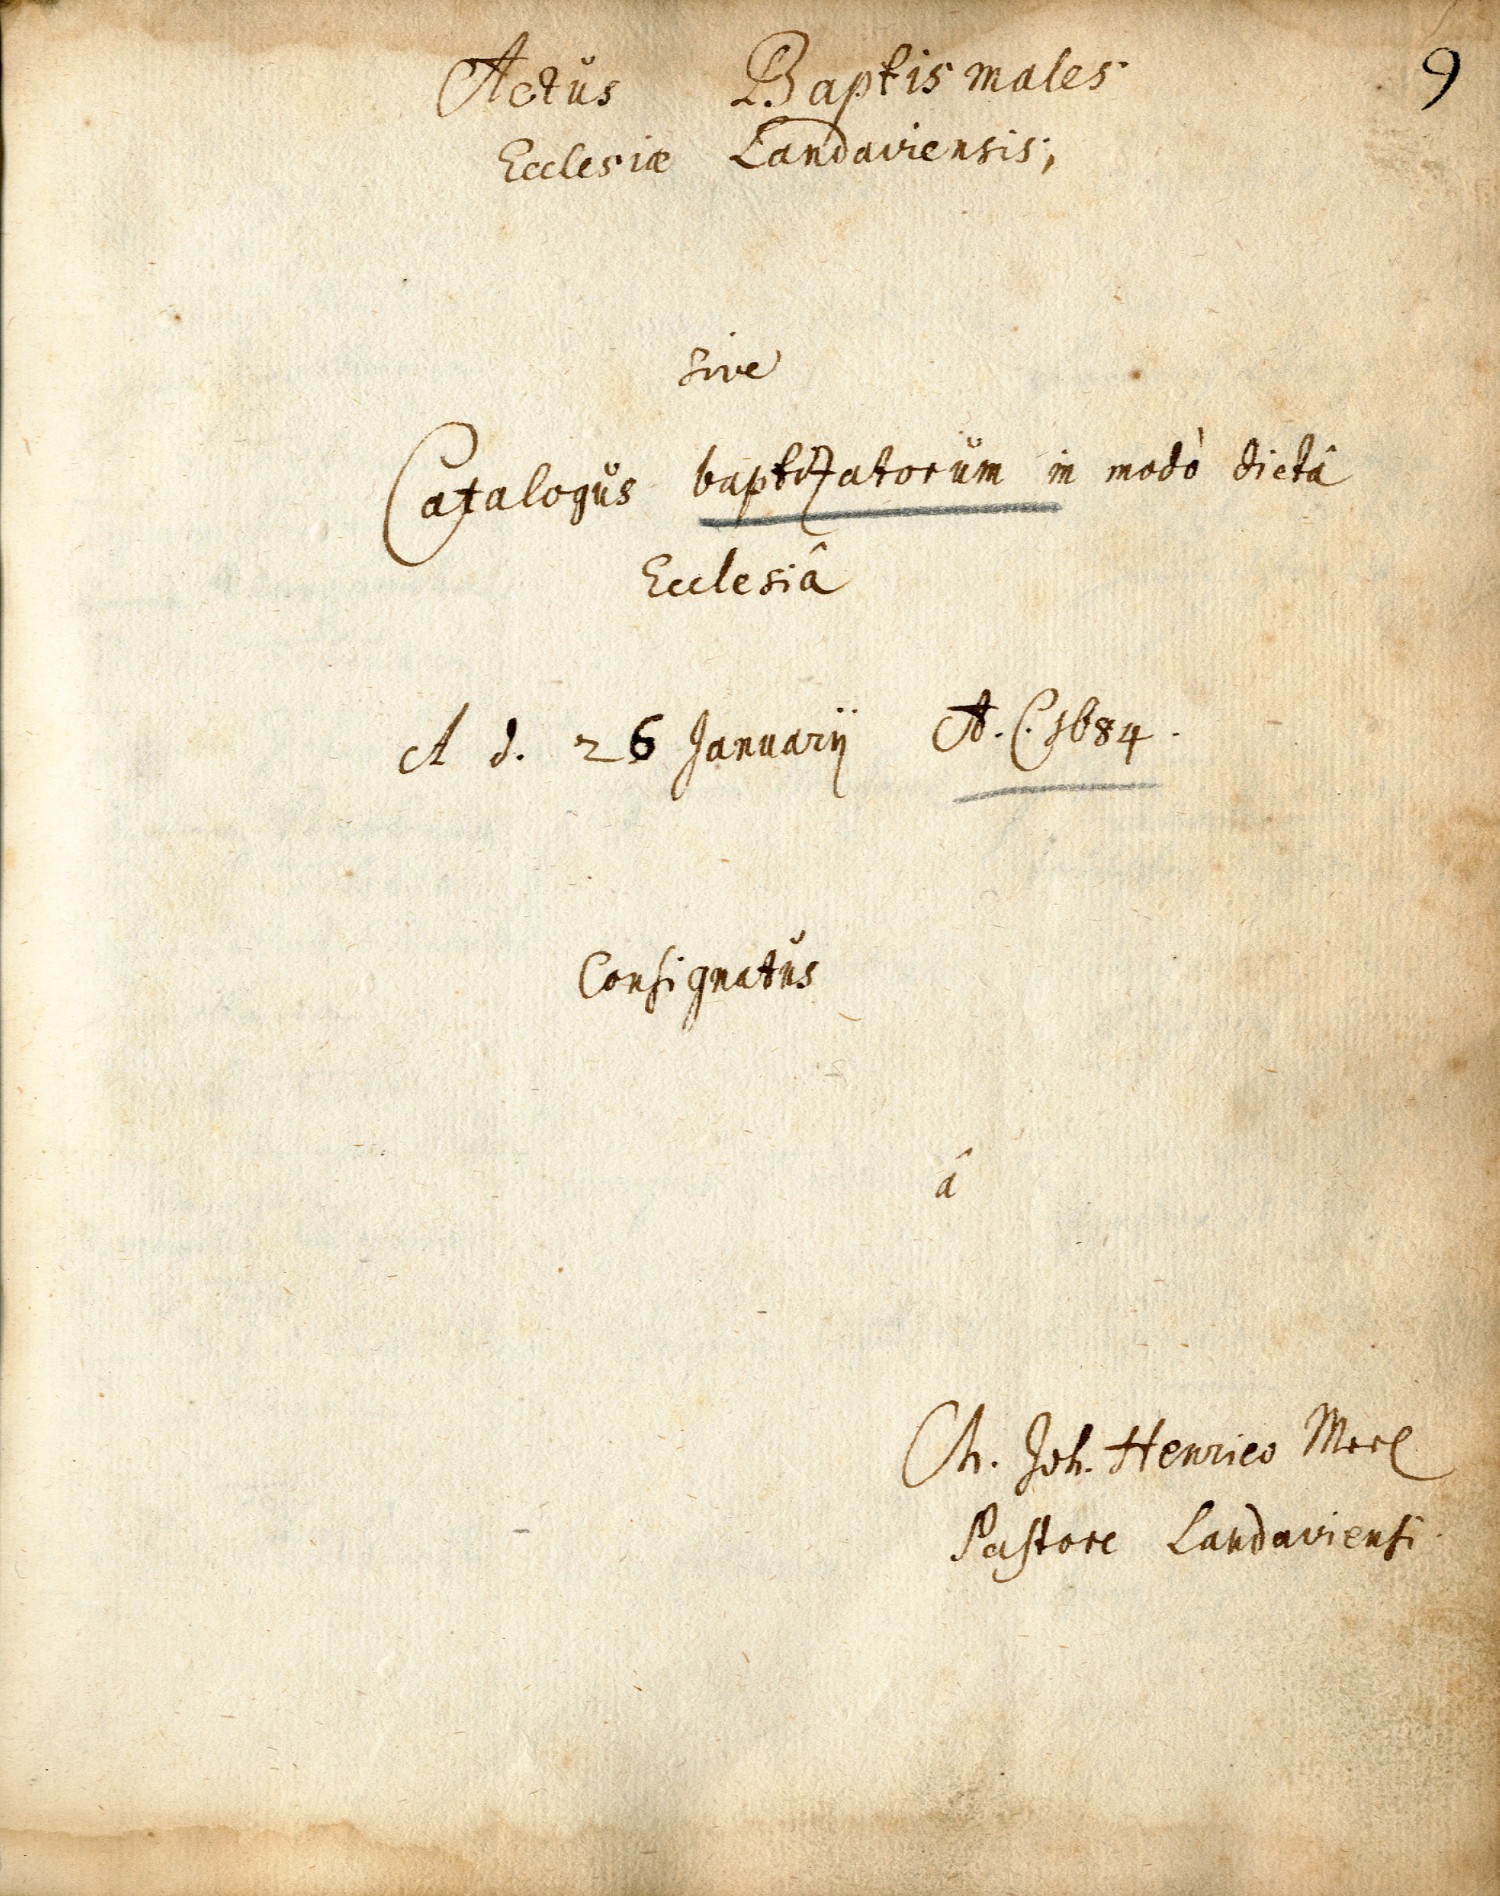 9
Actŭs Baptismales
Ecclesiæ Landaviensis,
sive
Catalogŭs baptizatorŭm in modò dictâ
Ecclesiâ
A d. 26 Januarÿ A. C. 1684.
Consignatŭs
â
Joh. Henrico
Pastore Landaviensi